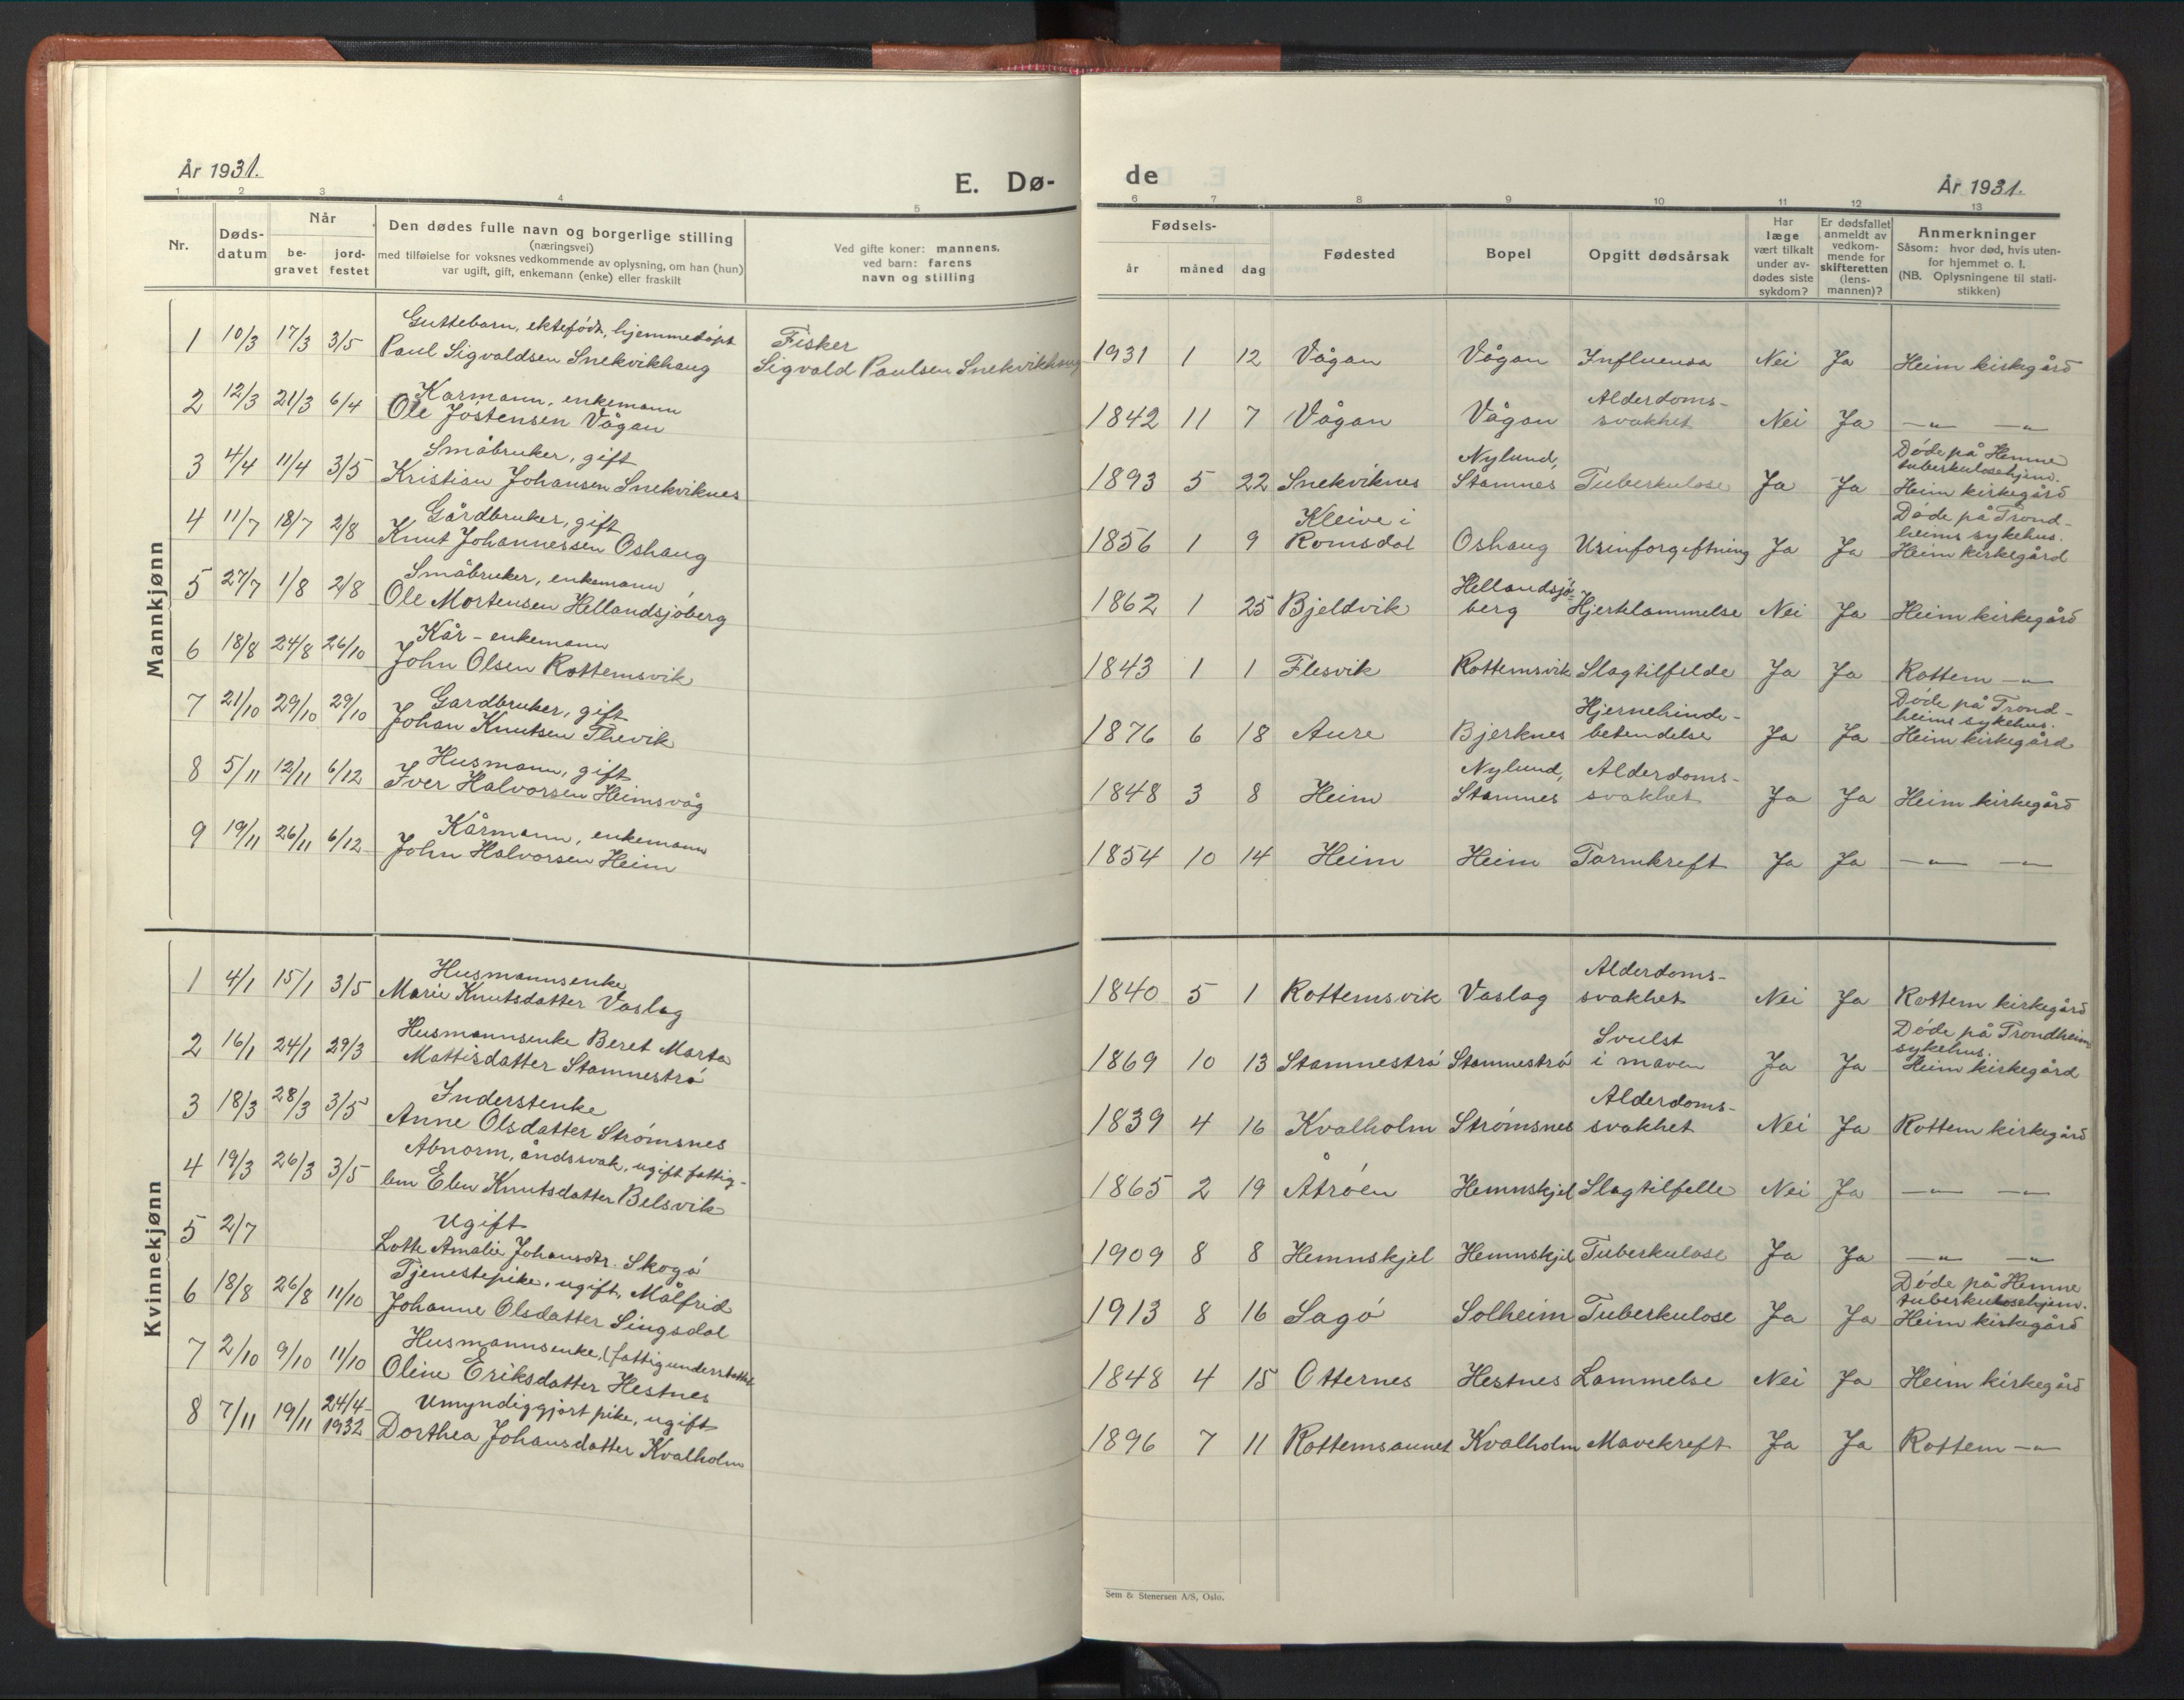 År 1931.
E. Dø-
1 2 3 4 5
Nr.
Døds-
datum
Når
be-
gravet
jord-
festet
Den dødes fulle navn og borgerlige stilling
(næringsvei)
med tilføielse for voksnes vedkommende av oplysning, om han (hun)
var ugift, gift, enkemann (enke) eller fraskilt
Ved gifte koner: mannens,
ved barn: farens
navn og stilling
Mannkjønn
Guttebarn, ektefødt, hjemmedøpt Fisker
1 10/3 17/3 3/5 Paul Sigvaldsen Snekvikhaug Sigvald Paulsen Snekvikhaug
Kårmann, enkemann
2 12/3 21/3 6/4 Ole Jøstensen Vågan
Småbruker, gift
3 4/4 11/4 3/5 Kristian Johansen Snekviknes
Gårdbruker, gift
4 11/7 18/7 2/8 Knut Johannessen Oshaug
Småbruker, enkemann
5 27/7 1/8 2/8 Ole Mortensen Hellandsjøberg
Kår - enkemann
6 18/8 24/8 26/10 John Olsen Rottemsvik
Gardbruker, gift
7 21/10 29/10 29/10 Johan Knutsen Thevik
Husmann, gift
8 5/11 12/11 6/12 Iver Halvorsen Heimsvåg
Kårmann, enkemann
9 19/11 26/11 6/12 John Halvorsen Heim
Kvinnekjønn
Husmannsenke
1 4/1 15/1 3/5 Marie Knutsdatter Vaslag
Husmannsenke Beret Marta
2 16/1 24/1 29/3 Mattisdatter Stamnestrø
Inderstenke
3 18/3 28/3 3/5 Anne Olsdatter Strømsnes
Abnorm, åndssvak, ugift fattig-
4 19/3 26/3 3/5 lem Elen Knutsdatter Belsvik
Ugift
5 2/7 Lotte Amalie Johansdtr. Skogø
Tjenestepike, ugift, Målfrid
6 18/8 26/8 11/10 Johanne Olsdatter Singsdal
Husmannsenke, (fattigunderstøttet
7 2/10 9/10 11/10 Oline Eriksdatter Hestnes
24/4 Umyndiggjort pike, ugift
8 7/11 19/11 1932 Dorthea Johansdatter Kvalholm
de
År 1931.
6 7 8 9 10 11 12 13
Fødsels-
år måned dag
Fødested
Bopel
Opgitt dødsårsak
Har
læge
vært tilkalt
under av-
dødes siste
sykdom?
Er dødsfallet
anmeldt av
vedkom-
mende for
skifteretten
(lens-
mannen)?
Anmerkninger
Såsom: hvor død, hvis uten-
for hjemmet o. l.
(NB. Oplysningene til stati-
stikken)
1931 1 12 Vågan Vågan Influensa Nei Ja Heim kirkegård
Alderdoms-
1842 11 7 Vågan Vågan svakhet Nei Ja —"— —"—
Nylund, Døde på Hemne
tuberkulosehjem.
1893 5 22 Snekviknes Stamnes Tuberkulose Ja Ja Heim kirkegård
Kleive i Døde på Trond-
heims sykehus.
1856 1 9 Romsdal Oshaug Urinforgiftning Ja Ja Heim kirkegård
Hellandsjø-
1862 1 25 Bjeldvik berg Hjertelammelse Nei Ja Heim kirkegård
1843 1 1 Flesvik Rottemsvik Slagtilfelde Ja Ja Rottem —"—
Hjernehinde- Døde på Trond-
heims sykehus.
1876 6 18 Aure Bjerknes betendelse Ja Ja Heim kirkegård
Nylund, Alderdoms-
1848 3 8 Heim Stamnes svakhet Ja Ja Heim kirkegård
1854 10 14 Heim Heim Tarmkreft Ja Ja —"— —"—
Alderdoms-
1840 5 1 Rottemsvik Vaslag svakhet Nei Ja Rottem kirkegård
Svulst Døde på Trondheim
sykehus.
1869 10 13 Stamnestrø Stamnestrø i maven Ja Ja Heim kirkegård
Alderdoms-
1839 4 16 Kvalholm Strømsnes svakhet Nei Ja Rottem kirkegård
1865 2 19 Åtrøen Hemnskjel Slagtilfelle Nei Ja —"— —"—
1909 8 8 Hemnskjel Hemnskjel Tuberkulose Ja Ja —"— —"—
Døde på Hemne
tuberkulosehjem.
1913 8 16 Sagø Solheim Tuberkulose Ja Ja Heim kirkegård
1848 4 15 Otternes Hestnes Lammelse Nei Ja Heim kirkegård
1896 7 11 Rottemsaunet Kvalholm Mavekreft Ja Ja Rottem —"—
Sem & Stenersen A/S, Oslo.